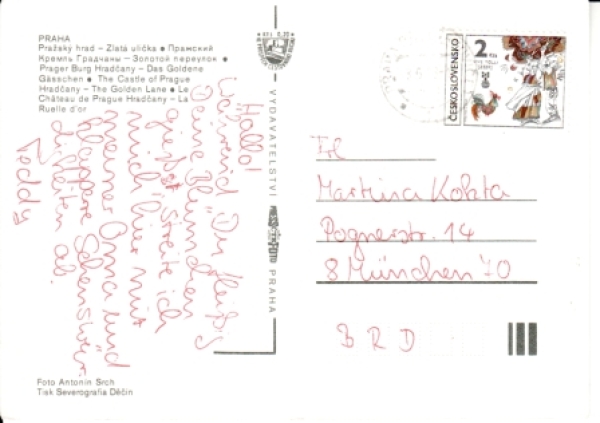 PRAHA
Pražský hrad – Zlatá ulička ● Пражский
Кремль Градчаны – Золотой переулок ●
Prager Burg Hradčany – Das Goldene
Gässchen ● The Castle of Prague
Hradčany – The Golden Lane ● Le
Château de Prague Hradčany – La
Ruelle d'or
Hallo!
Während Du fleißig
Deine Blümchen
gießt, streite ich
mich hier mit
meiner Oma und
klappere Sehenswür-
digkeiten ab.
Teddy
Foto Antonín Srch
Tisk Severografia Děčín
VYDAVATELSTVÍ
PRAHA
ČESKOSLOVENSKO
2 Kčs
Frl
Martina Kolata
Pognerstr. 14
8 München 70
BRD